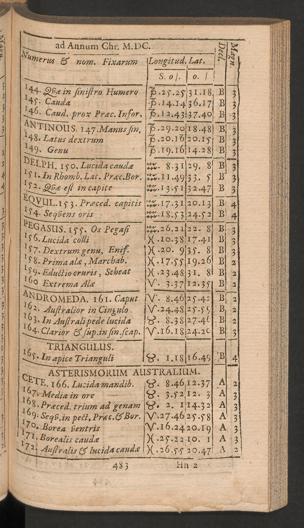 ad Annum Chr. M.DC.
Numerus & nom. Fixarum Longitud. Lat. Decl. Magn.
S. o /. o. /
144. Quæ in sinistro Humero ♑. 25.25 31.18. B 3
145. Cauda ♑. 14.14 36.17 B 3
146. Caud. prox Præc. Infor. ♑. 12.43 37.40 B 3
ANTINOUS. 147. Manus sin. ♑. 29.20 18.48 B 3
148. Latus dextrum ♑. 20.16 20.15 B 3
149. Genu ♑. 19.16 14.28 B 3
DELPH. 150. Lucida caudæ ♒. 8.31 29. 8 B 3
151. In Rhomb. Lat. Præc. Bor. ♒. 11.49 33. 5 B 3
152. Quæ est in capite ♒. 13.51 32.47 B 3
EQVUL. 153. Præced. capitis ♒. 17.31 20.13 B 4
154. Seqvens oris ♒. 18.53 24.52 B 4
PEGASUS. 155. Os Pegasi ♒. 26.21 22. 8 B 3
156. Lucida colli ♓. 10.38 17.41 B 3
157. Dextrum genu, Enif. ♓. 20. 9 35. 8 B 3
158. Prima alæ, Marchab. ♓. 17.55 19.26 B 2
159. Eductio cruris, Scheat ♓. 23.48 31. 8 B 2
160 Extrema Alæ ♈. 3.37 12.35 B 2
ANDROMEDA. 161. Caput ♈. 8.46 25.42 B 2
162. Australior in Cingulo ♈. 24.48 25.59 B 2
163. In Australi pede lucida ♉. 8.38 27.46 B 2
164. Clarior & sup. in sin. scap. ♈. 16.18 24.20 B 3
TRIANGULUS.
165. In apice Trianguli ♉. 1.18 16.49 B 4
ASTERISMORUM AUSTRALIUM.
CETE. 166. Lucida mandib. ♉. 8.46 12.37 A 2
167. Media in ore ♉. 3.52 12. 3 A 3
168. Præced. trium ad genam ♉. 2. 1 14.32 A 3
169. Seqv. in pect, Præc. & Bor. ♈. 27.46 25.58 A 3
170. Borea ventris ♈. 16.24 20.19 A 3
171. Borealis caudæ ♓. 25.21 10. 1 A 3
172. Australis & lucida caudæ ♓. 26.55 20.47 A 2
483 Hh 2